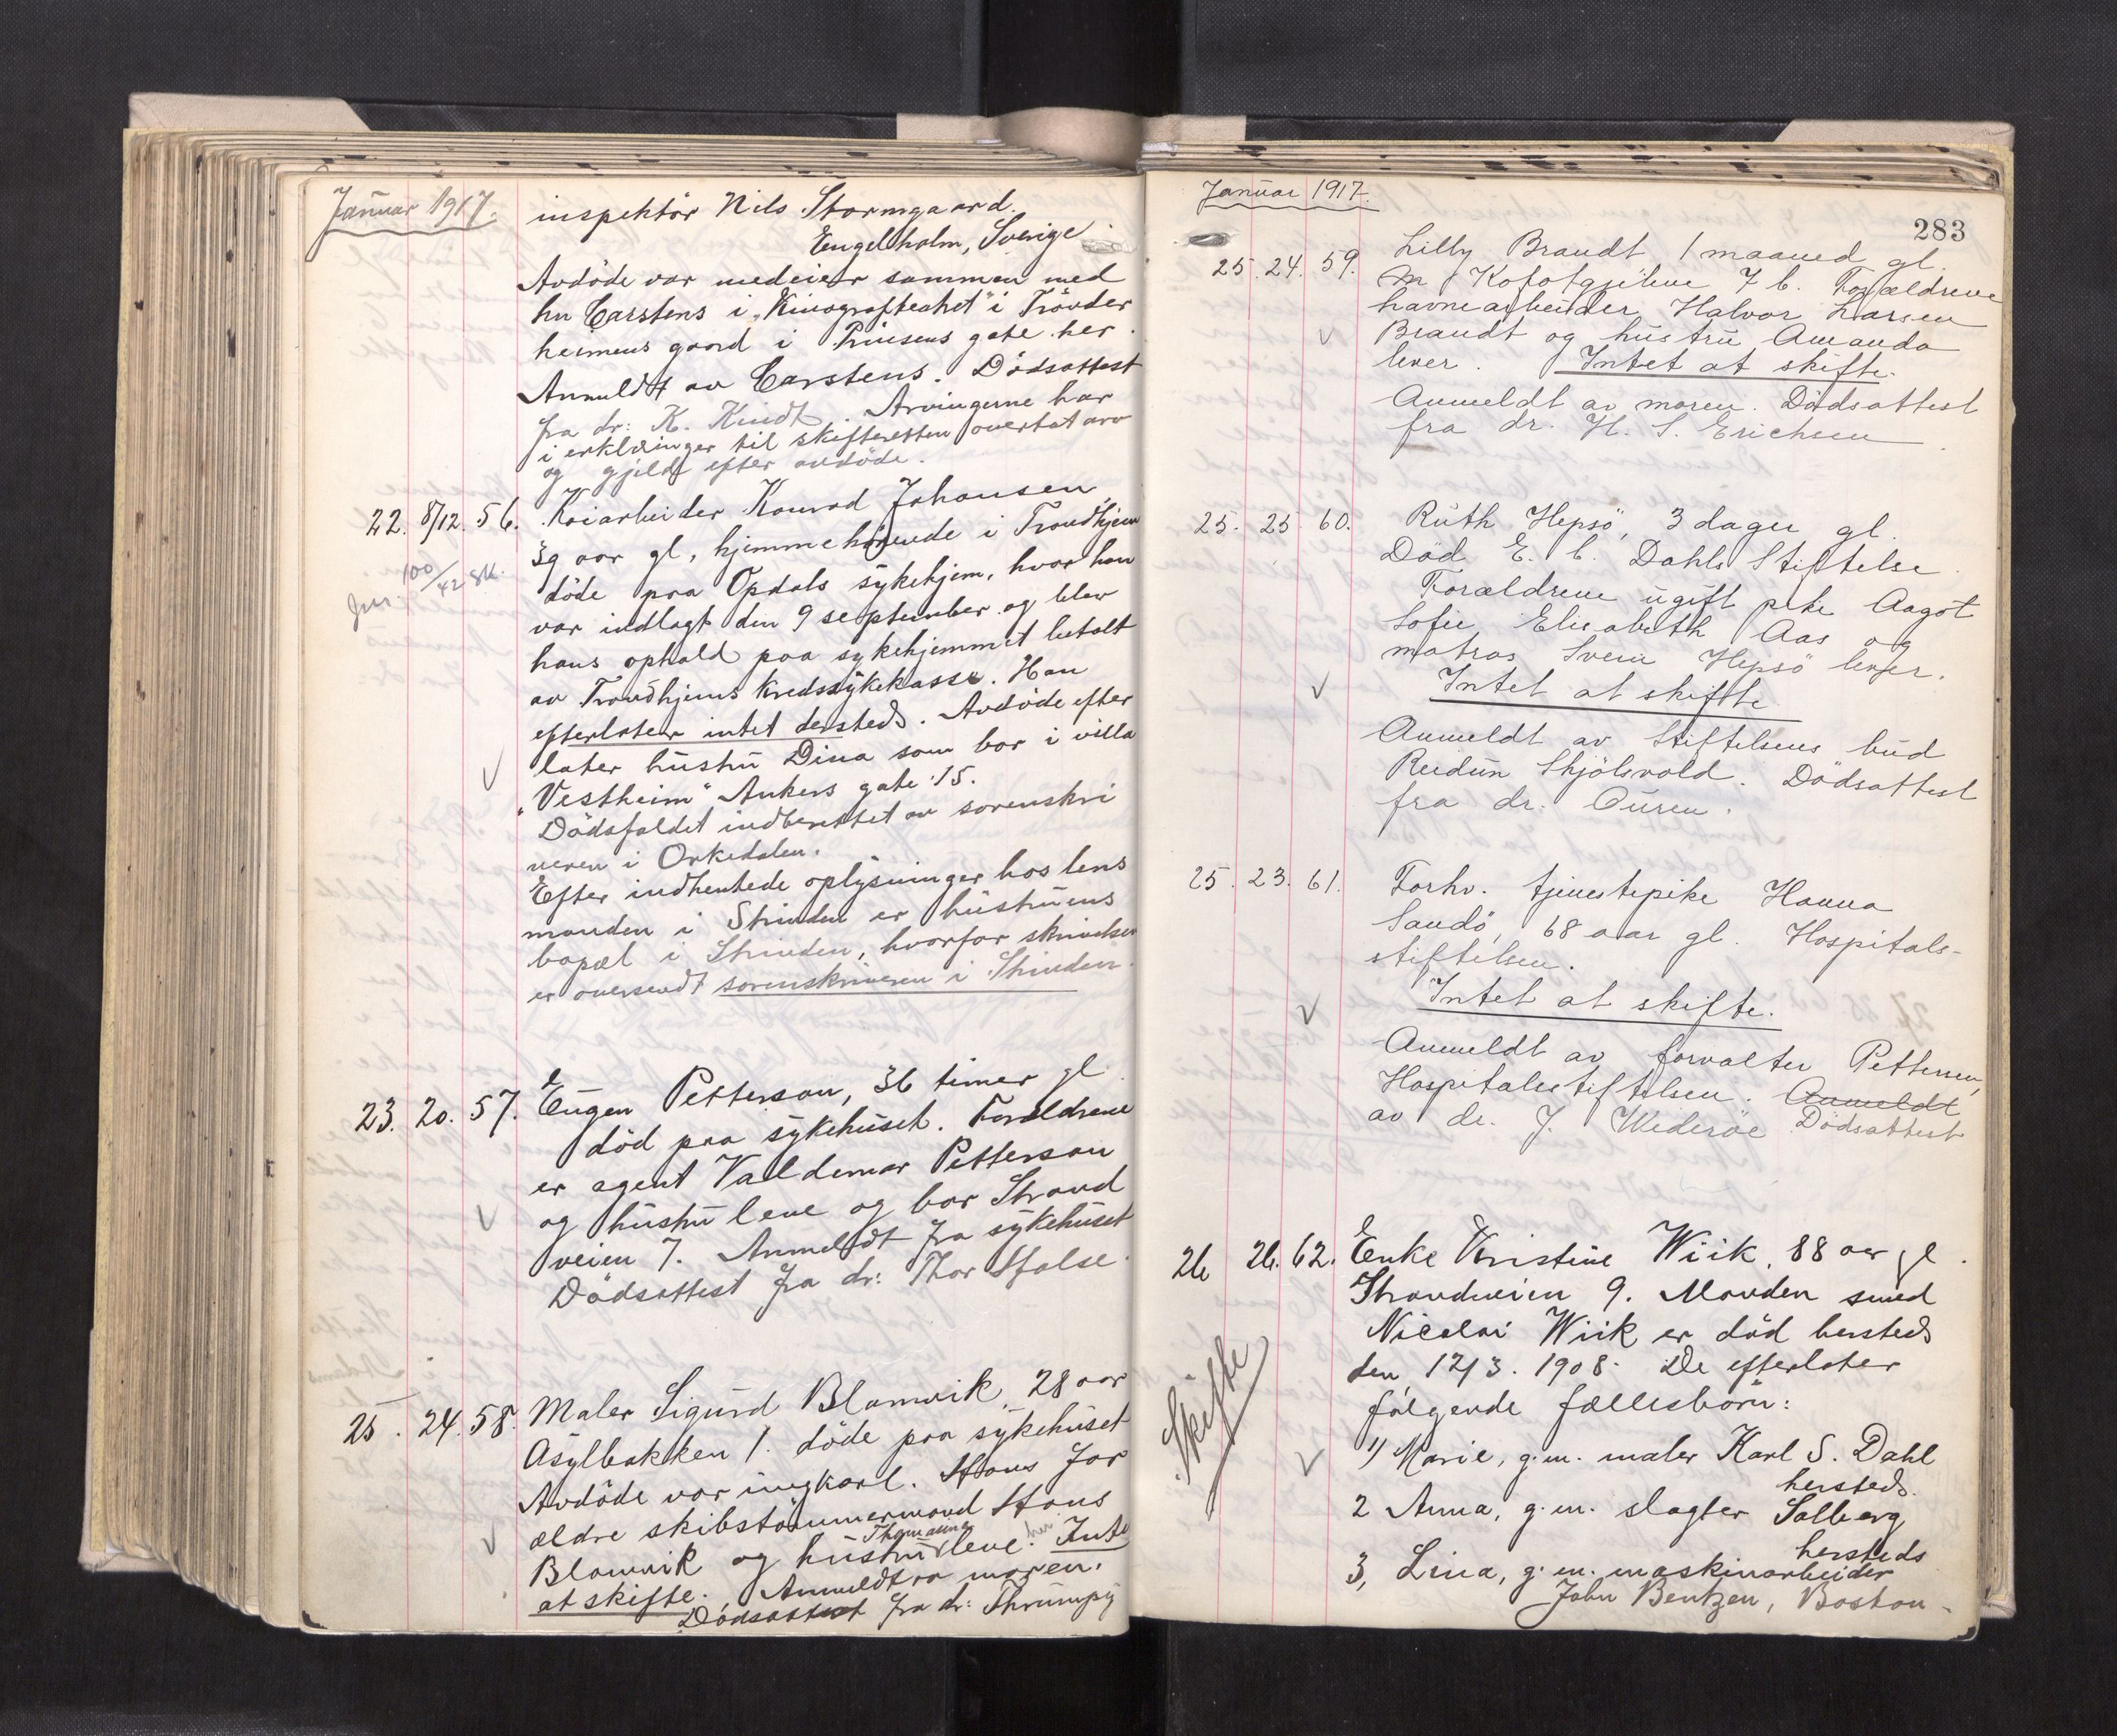 Januar 1917.
inspektör Nils Stormgaard.
Engelholm, Sverige.
Avdöde var medeier sammen med
hr Carstens i "Kinografteatret" i Trönder
heimens gaard i Prinsens gate her.
Anmeldt av Carstens. Dödsattest
fra dr: K. Kindt. Arvingerne har
i erklæringer til skifteretten overtat arv
og gjeld efter avdöde.
22. 8/12. 56. Kaiarbeider Konrad Johansen,
39 aar gl, hjemmehörende i Trondhjem
100/42 Sk.
döde paa Opdals sykehjem, hvor han
var indlagt den 9 september og blev
hans ophold paa sykehjemmet betalt
av Trondhjems kredssykekasse. Han
efterlater intet dersteds. Avdöde efter
later hustru Dina som bor i villa
"Vestheim" Ankers gate 15.
Dödsfaldet indberettet av sorenskri
veren i Orkedalen.
Efter indhentede oplysninger hos lens
manden i Strinden er hustruens
bopæl i Strinden, hvorfor skrivelsen
er oversendt sorenskriveren i Strinden.
23. 20. 57. Eugen Petterson, 36 timer gl.
död paa sykehuset. Forældrene
er agent Valdemar Petterson
og hustru leve og bor Strand
veien 7. Anmeldt fra sykehuset
Dödsattest fra dr: Thor Halse.
25. 24. 58. Maler Sigurd Blomvik, 28 aar
Asylbakken 1. döde paa sykehuset
Avdöde var ungkarl. Hans for
ældre skibstömmermand Hans
Thomasine her
Blomvik og hustru leve. Intet
at skifte. Anmeldt av moren.
Dödsattest fra dr: Thrumpy
Januar 1917.
283
25. 24. 59. Lilly Brandt 1 maaned gl.
7 b. Forældrene
havnearbeider Halvor Larsen
Brandt og hustru Amanda
lever. Intet at skifte.
Anmeldt av moren. Dödsattest
fra dr. H. S. Erichsen
25. 25 60. Ruth Hepsö, 3 dager gl.
Död E. C. Dahls Stiftelse.
Forældrene ugift pike Aagot
Sofie Elisabeth Aas og
matros Svein Hepsö lever.
Intet at skifte
Anmeldt av Stiftelsens bud
Reidun Skjölsvold. Dödsattest
fra dr. Ouren.
25. 23. 61. Forhv. tjenestepike Hanna
Sandö, 68 aar gl. Hospitals-
stiftelsen.
Intet at skifte.
Anmeldt av forvalter Pettersen,
Hospitalsstiftelsen. Anmeldt
av dr. J. Wideröe Dödsattest
26 26. 62. Enke Kristine Wiik, 88 aar gl.
Strandveien 9. Manden smed
Nicolai Wiik er död hersteds
den 12/3. 1908. De efterlater
følgende fællesbörn:
Skifte
1) Marie, g.m. maler Karl S. Dahl
hersteds.
2 Anna, g.m. slagter Solberg
hersteds
3, Lina, g.m. maskinarbeider
John Bentzen, Boston